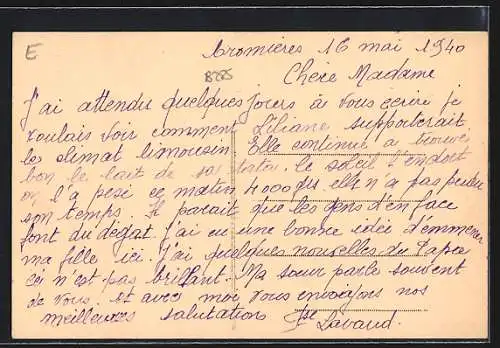 E
Cromières 16 mai 1940
Chère Madame
J'ai attendu quelques jours à vous écrire je
voulais voir comment Liliane supporterait
le climat limousin Elle continue à trouver
bon le lait de sa tata. le soleil l'endort
on l'a pesé ce matin 4000 gr elle n'a pas perdu
son temps. Il parait que les gens d'en face
font du dégat. J'ai eu une bonne idée d'emmener
ma fille ici. J'ai quelques nouvelles du Papa
ce n'est pas brillant. Ma soeur parle souvent
de vous. et avec moi vous envoyons nos
meilleures salutations
Lavaud.